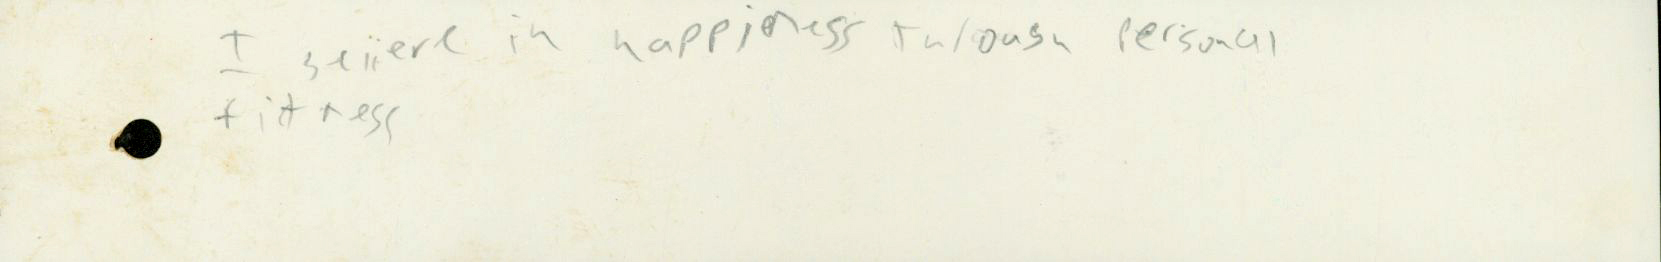 I believe in happiness through personal
fitness